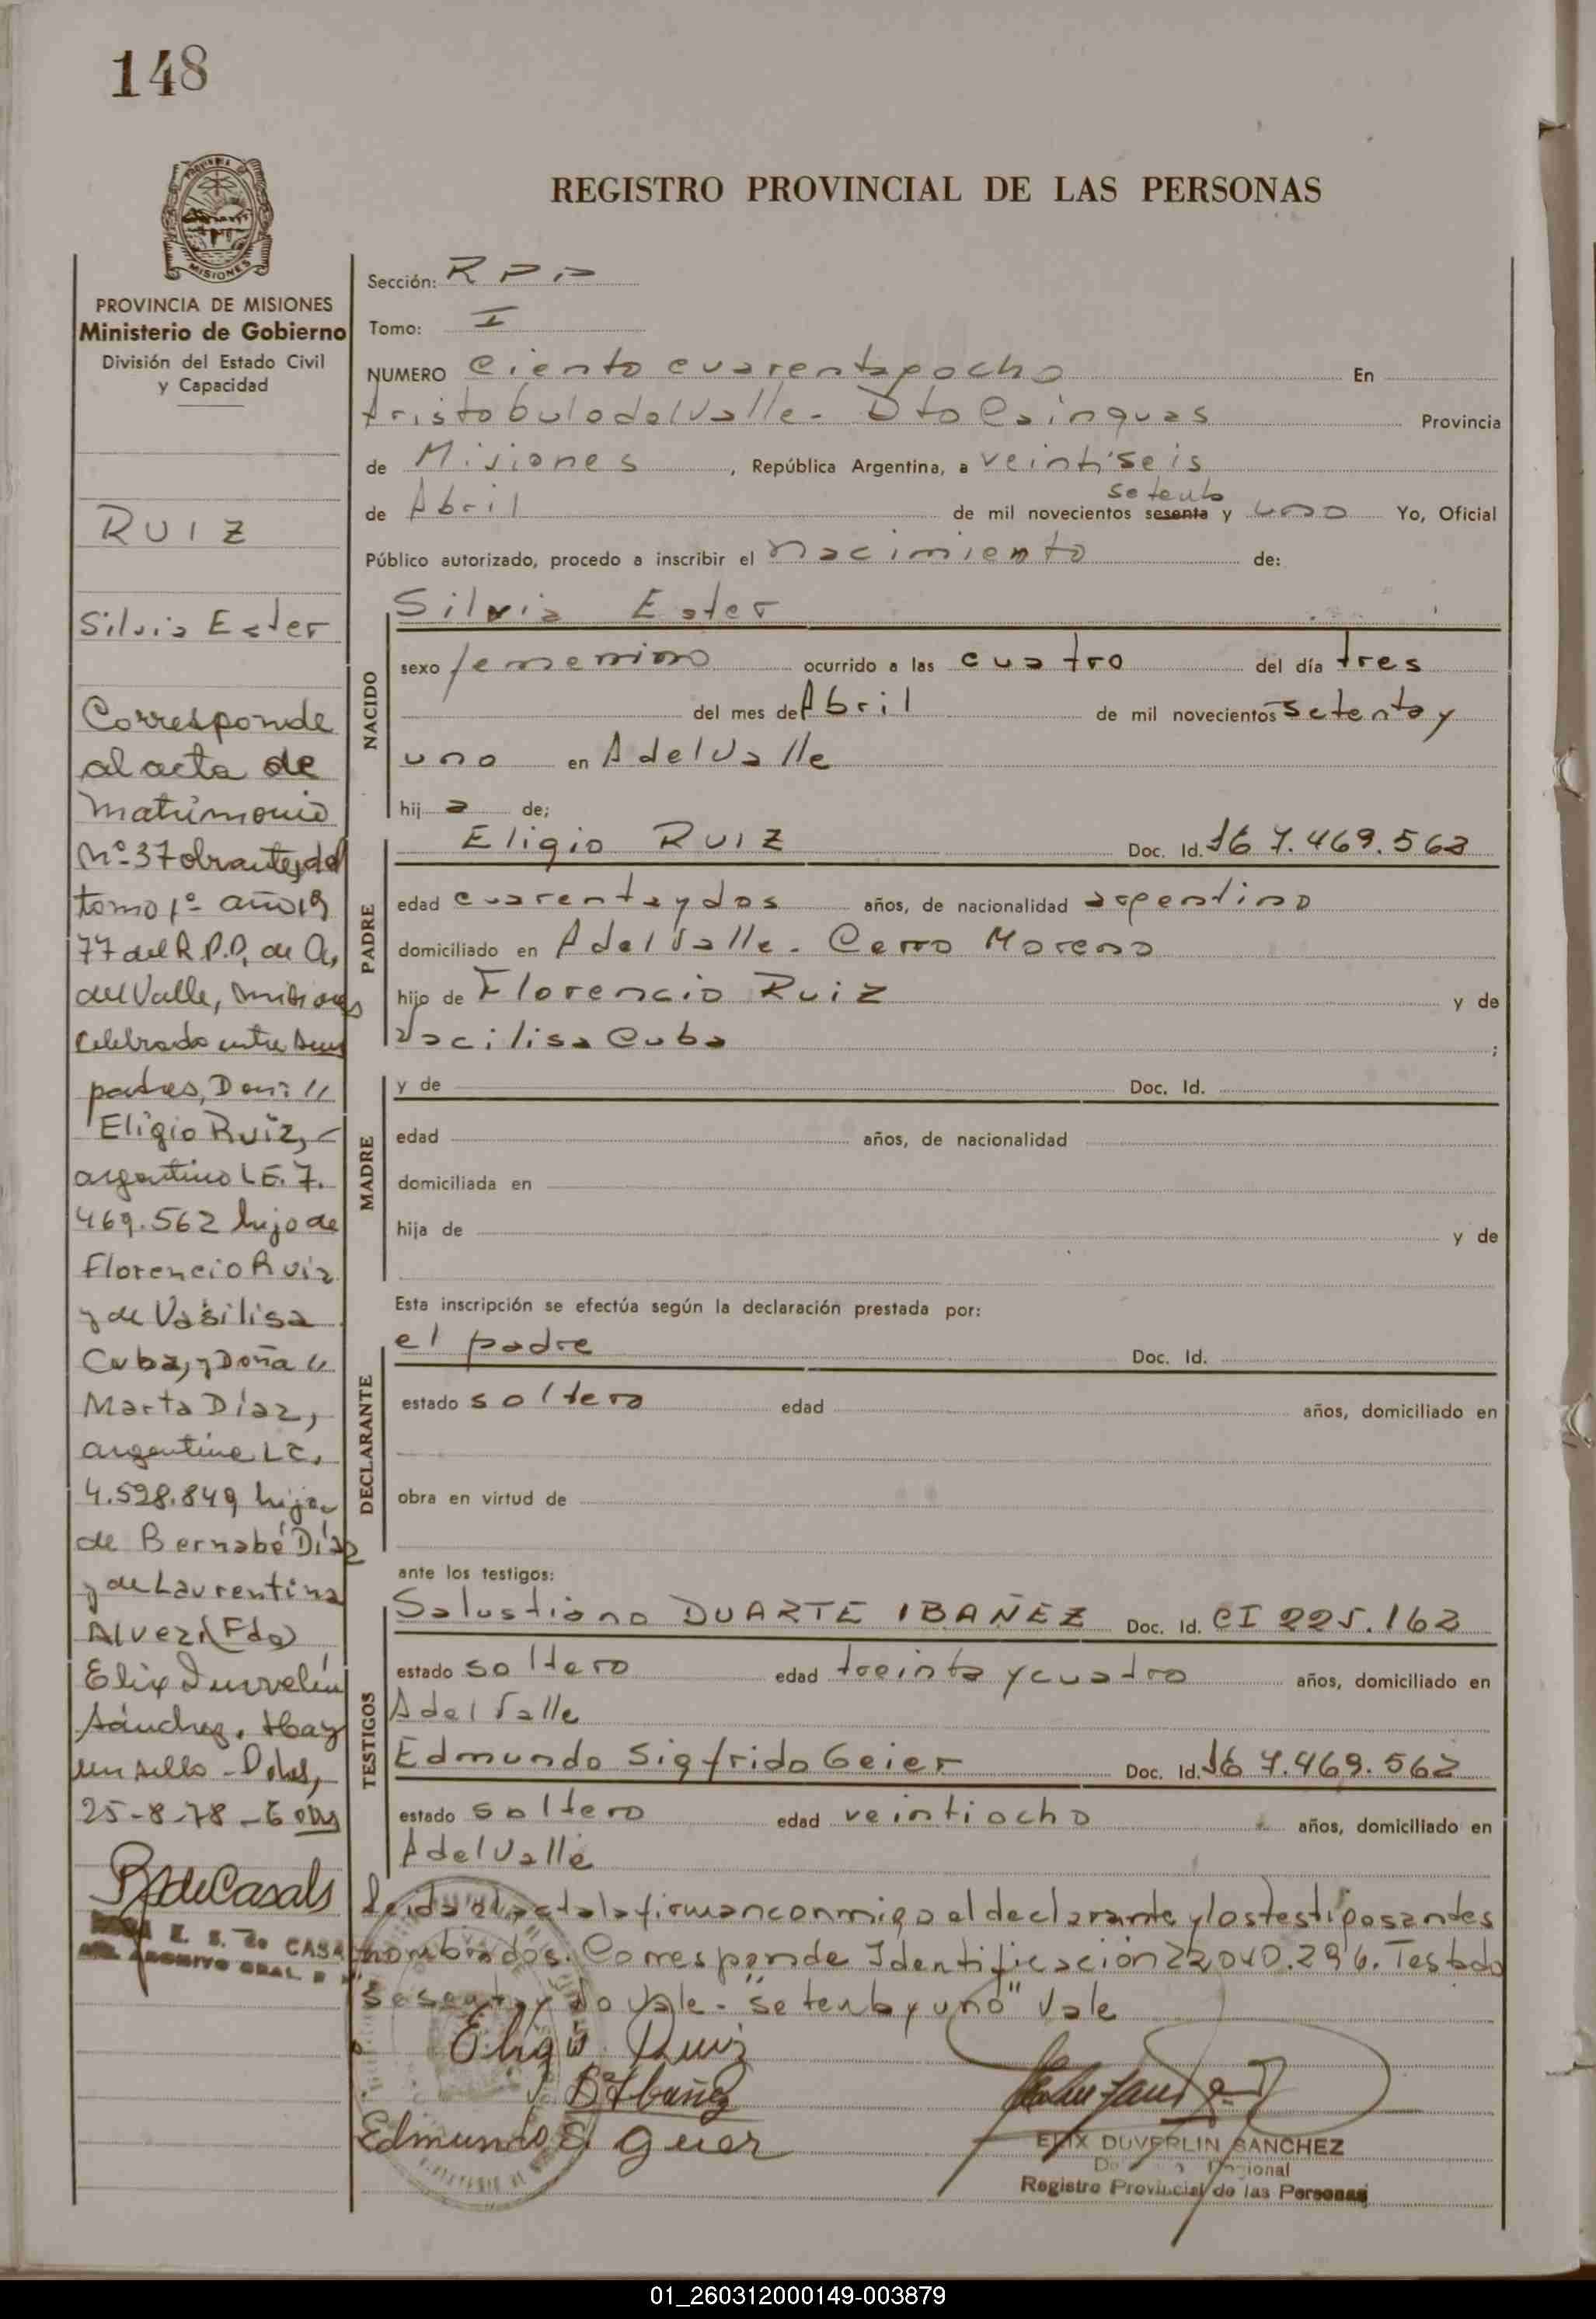 148
PROVINCIA DE MISIONES
MISIONES
PROVINCIA DE MISIONES
Ministerio de Gobierno
División del Estado Civil
y Capacidad
RUIZ
Silvia Ester
Corresponde
al acta de
matrimonio
Nº 37 obrante, del
tomo 1º año 19
77 del R.P.P, de A,
del Valle, Misiones
Celebrado entre sus
padres, Don: //
Eligio Ruiz, -
argentino L E. 7.
469.562 hijo de
Florencio Ruiz
y de Vasilisa
Cuba, y Doña //
Marta Díaz,
argentina L C,
4.528.849 hija
de Bernabé Díaz
y de Laurentina
Alvez. (Fdo)
Elix Duverlín
Sánchez. Hay
un sello - Pdas,
25-8-78 -
de Casals
REGISTRO PROVINCIAL DE LAS PERSONAS
Sección: R P P
Tomo: I
NUMERO Ciento cuarentayocho En
Aristobulo del Valle - Dto Cainguas Provincia
de Misiones, República Argentina, a veintiseis
setenta
de Abril de mil novecientos sesenta y uno Yo, Oficial
Público autorizado, procedo a inscribir el nacimiento de:
Silvia Ester
NACIDO
sexo femenino ocurrido a las cuatro del día tres
del mes de Abril de mil novecientos setenta y
uno en A del Valle
hij a de;
PADRE
Eligio RUIZ Doc. Id. 7.469.562
edad cuarenta y dos años, de nacionalidad argentino
domiciliado en A del Valle - Cerro Moreno
hijo de Florencio Ruiz y de
Vacilisa Cuba ;
MADRE
y de Doc. Id.
edad años, de nacionalidad
domiciliada en
hija de y de
Esta inscripción se efectúa según la declaración prestada por:
DECLARANTE
el padre Doc. Id.
estado soltero edad años, domiciliado en
obra en virtud de
ante los testigos:
TESTIGOS
Salustiano DUARTE IBAÑEZ Doc. Id. CI 225.162
estado soltero edad treinta y cuatro años, domiciliado en
A del Valle
Edmundo Sigfrido Geier Doc. Id. 7.469.562
estado soltero edad veintiocho años, domiciliado en
A del Valle
Leida el acta la firman conmigo el declarante y los testigos antes
nombrados. Corresponde Identificación 22.040.296. Testado
sesenta y no vale - "setenta y uno" Vale
Eligio Ruiz
Ibañez
Edmundo S. Geier
ELIX DUVERLIN SANCHEZ
Registro Provincial de las Personas
01_260312000149-003879